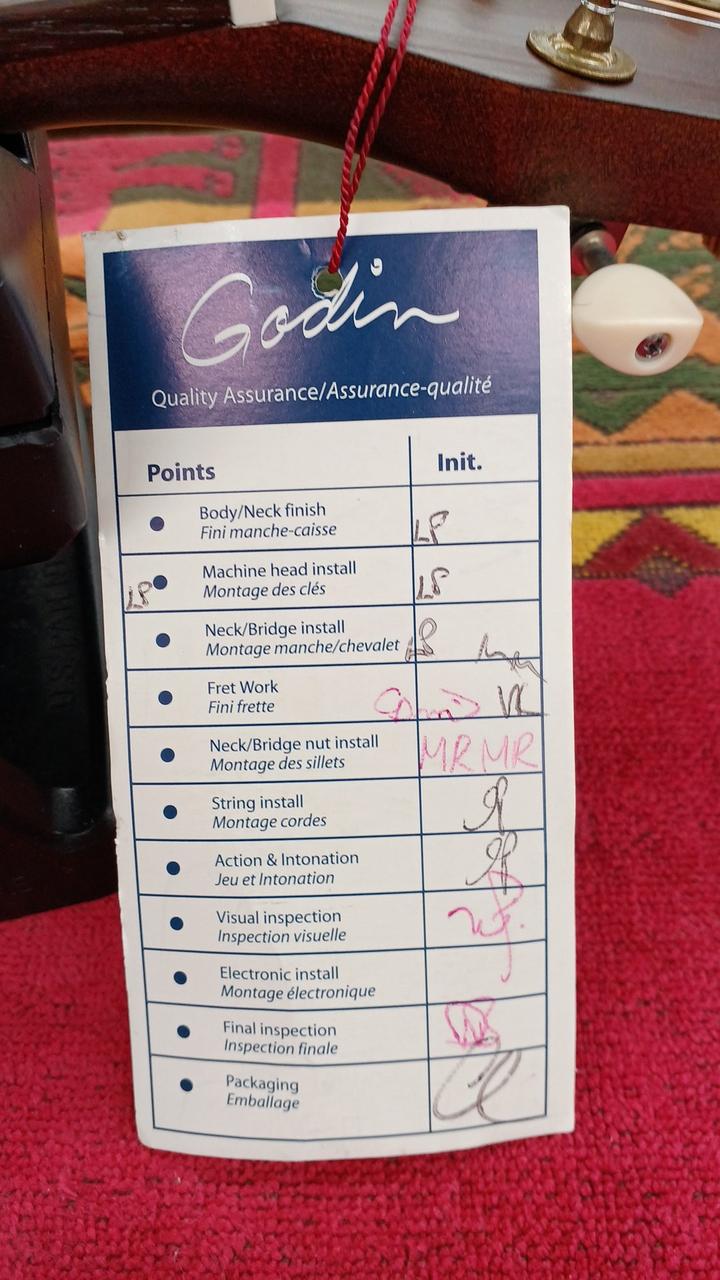 Godin
Quality Assurance/Assurance-qualité
Points Init.
Body/Neck finish
Fini manche-caisse
LP
Machine head install
Montage des clés
LP LP
Neck/Bridge install
Montage manche/chevalet
LP
Fret Work
Fini frette
Neck/Bridge nut install
Montage des sillets
MR MR
String install
Montage cordes
Action & Intonation
Jeu et Intonation
Visual inspection
Inspection visuelle
Electronic install
Montage électronique
Final inspection
Inspection finale
Packaging
Emballage